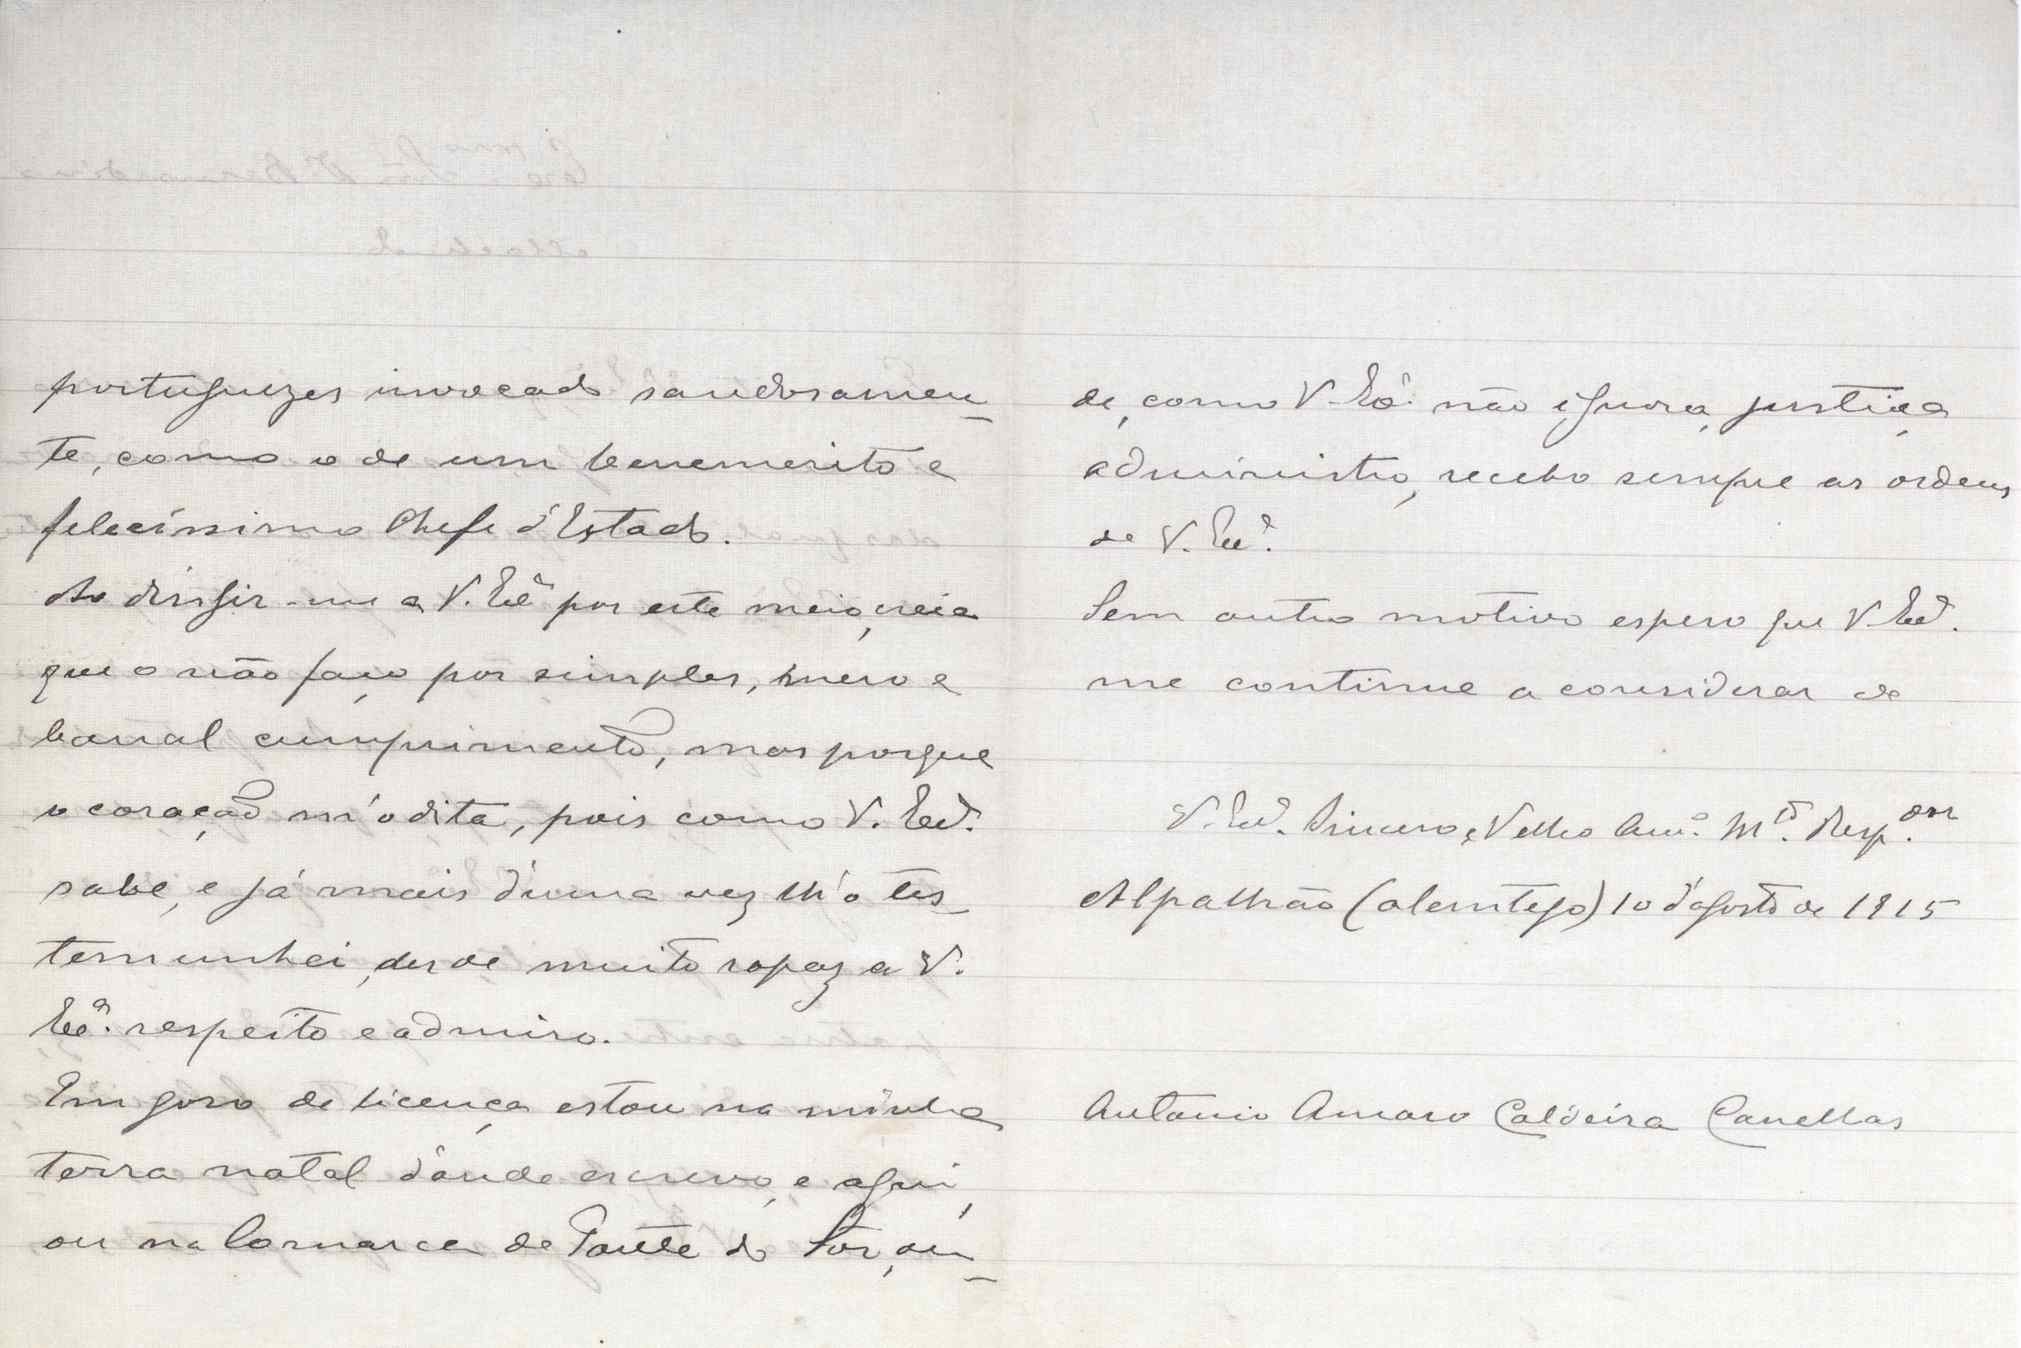 portuguezes invocado saudosamen-
te, como o de um benemerito e
felecissimo Chefe d'Estado.
Ao dirigir-me a V. Exª por este meio, creia
que o não faço por simples, mero e
banal cumprimento, mas porque
o coração m'o dita, pois como V. Exª.
sabe, e já mais d'uma vez lh'o tes-
temunhei, desde muito rapaz a V.
Exª. respeito e admiro.
Em goso de licença estou na minha
terra natal d'onde escrevo, e aqui,
ou na Comarca de Ponte do Sor, on-
de, como V. Exª. não ignora, justiça
administro, recebo sempre as ordens
de V. Exª.
Sem outro motivo espero que V. Exª.
me continue a considerar de
V. Exª. Sincero, e Velho Amº. Mtº. Respor
Alpalhão (Alemtejo) 10 d'agosto de 1915
Antonio Amaro Caldeira Canellas